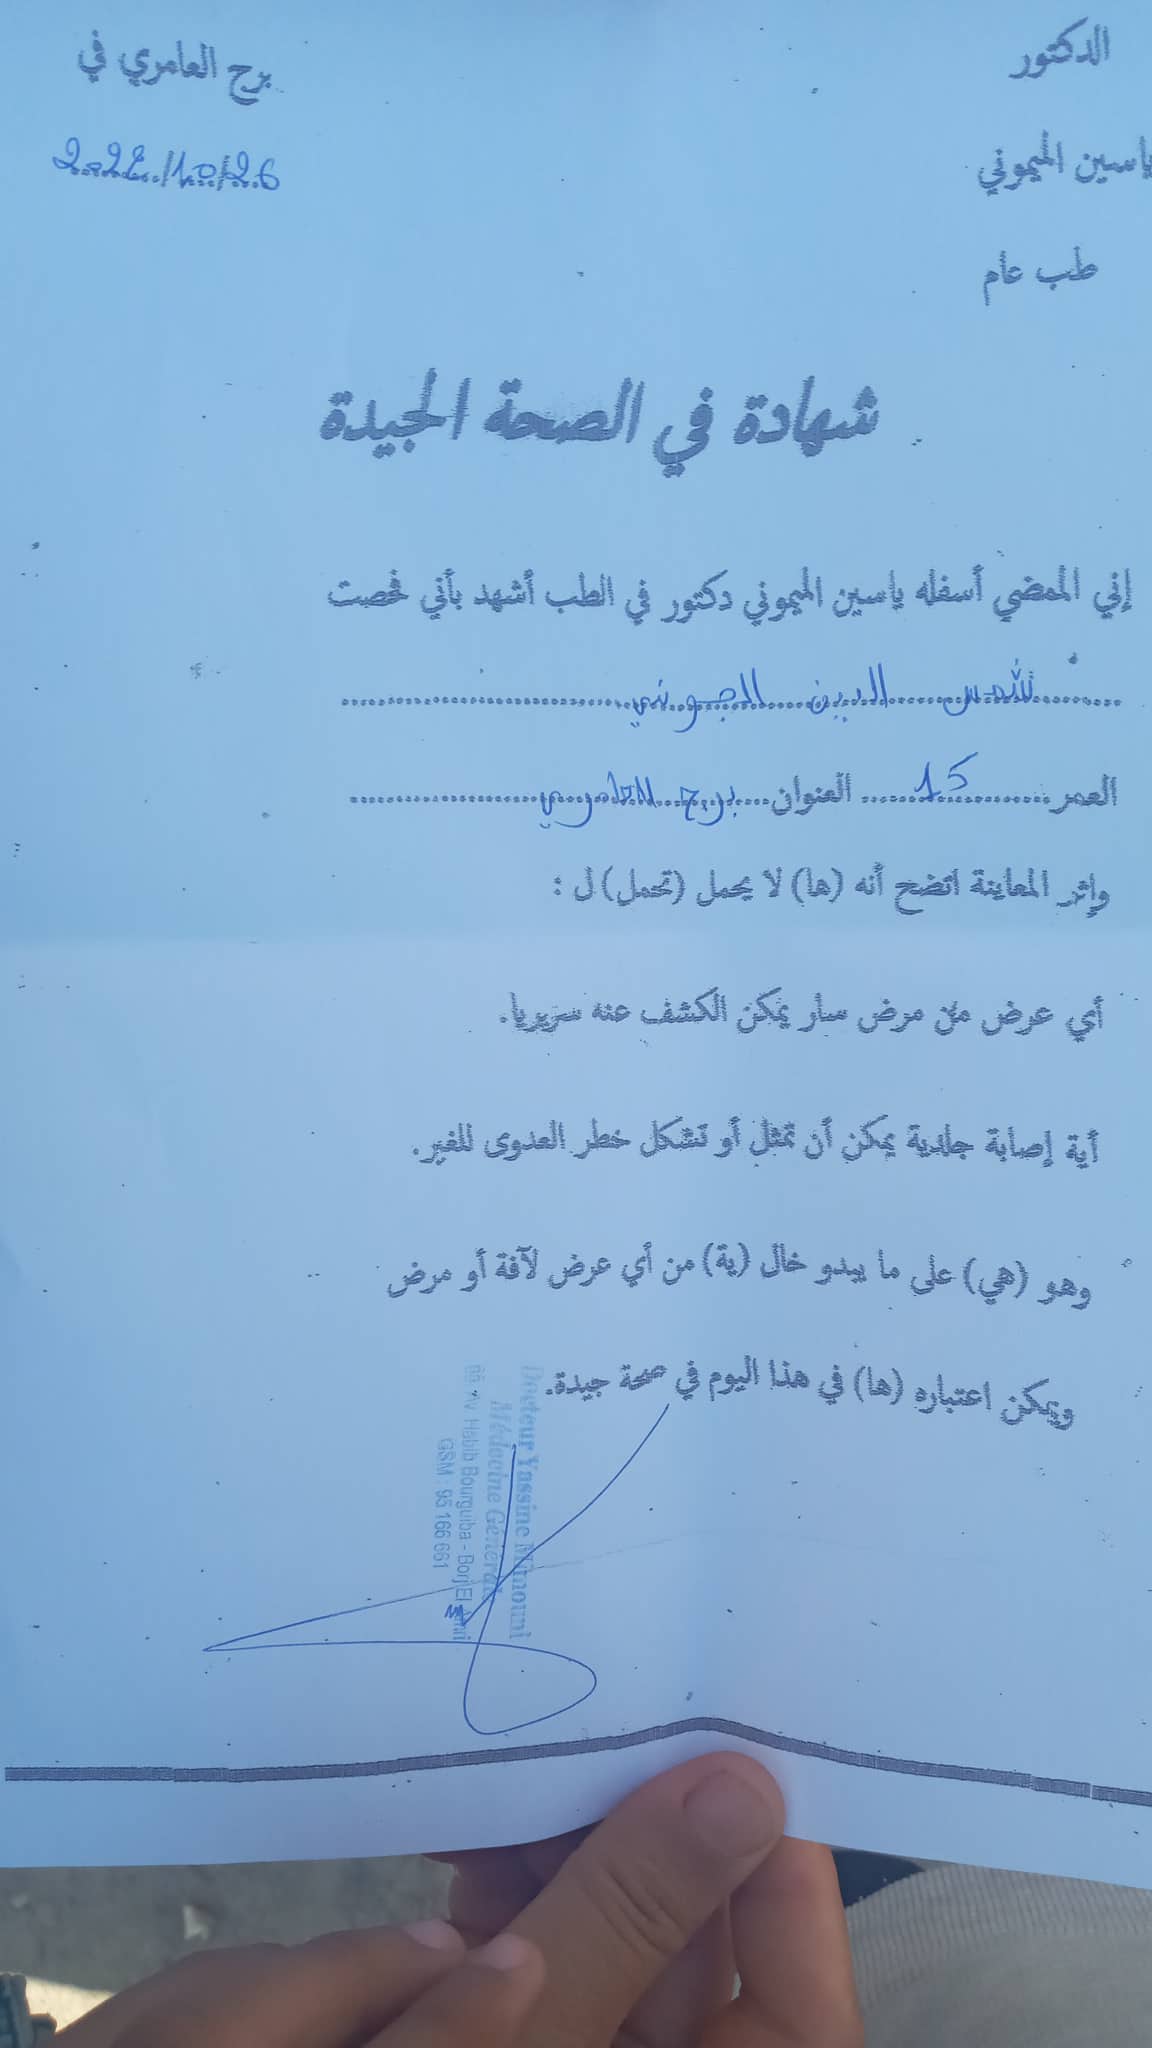 الدكتور
برج العامري في
ياسين الميموني
26/10/202
طب عام
شهادة في الصحة الجيدة
إني الممضي أسفله ياسين الميموني دكتور في الطب أشهد بأني فحصت
شمس الدين
العمر 15 العنوان برج العامري
وإثر المعاينة اتضح أنه (ها) لا يحمل (تحمل) ل :
أي عرض من مرض سار يمكن الكشف عنه سريريا.
أية إصابة جلدية يمكن أن تمثل أو تشكل خطر العدوى للغير.
وهو (هي) على ما يبدو خال (ية) من أي عرض لآفة أو مرض
ويمكن اعتباره (ها) في هذا اليوم في صحة جيدة.
Docteur Yassine Mimouni
Médecine Générale
Habib Bourguiba - Borj El
GSM : 95 166 661